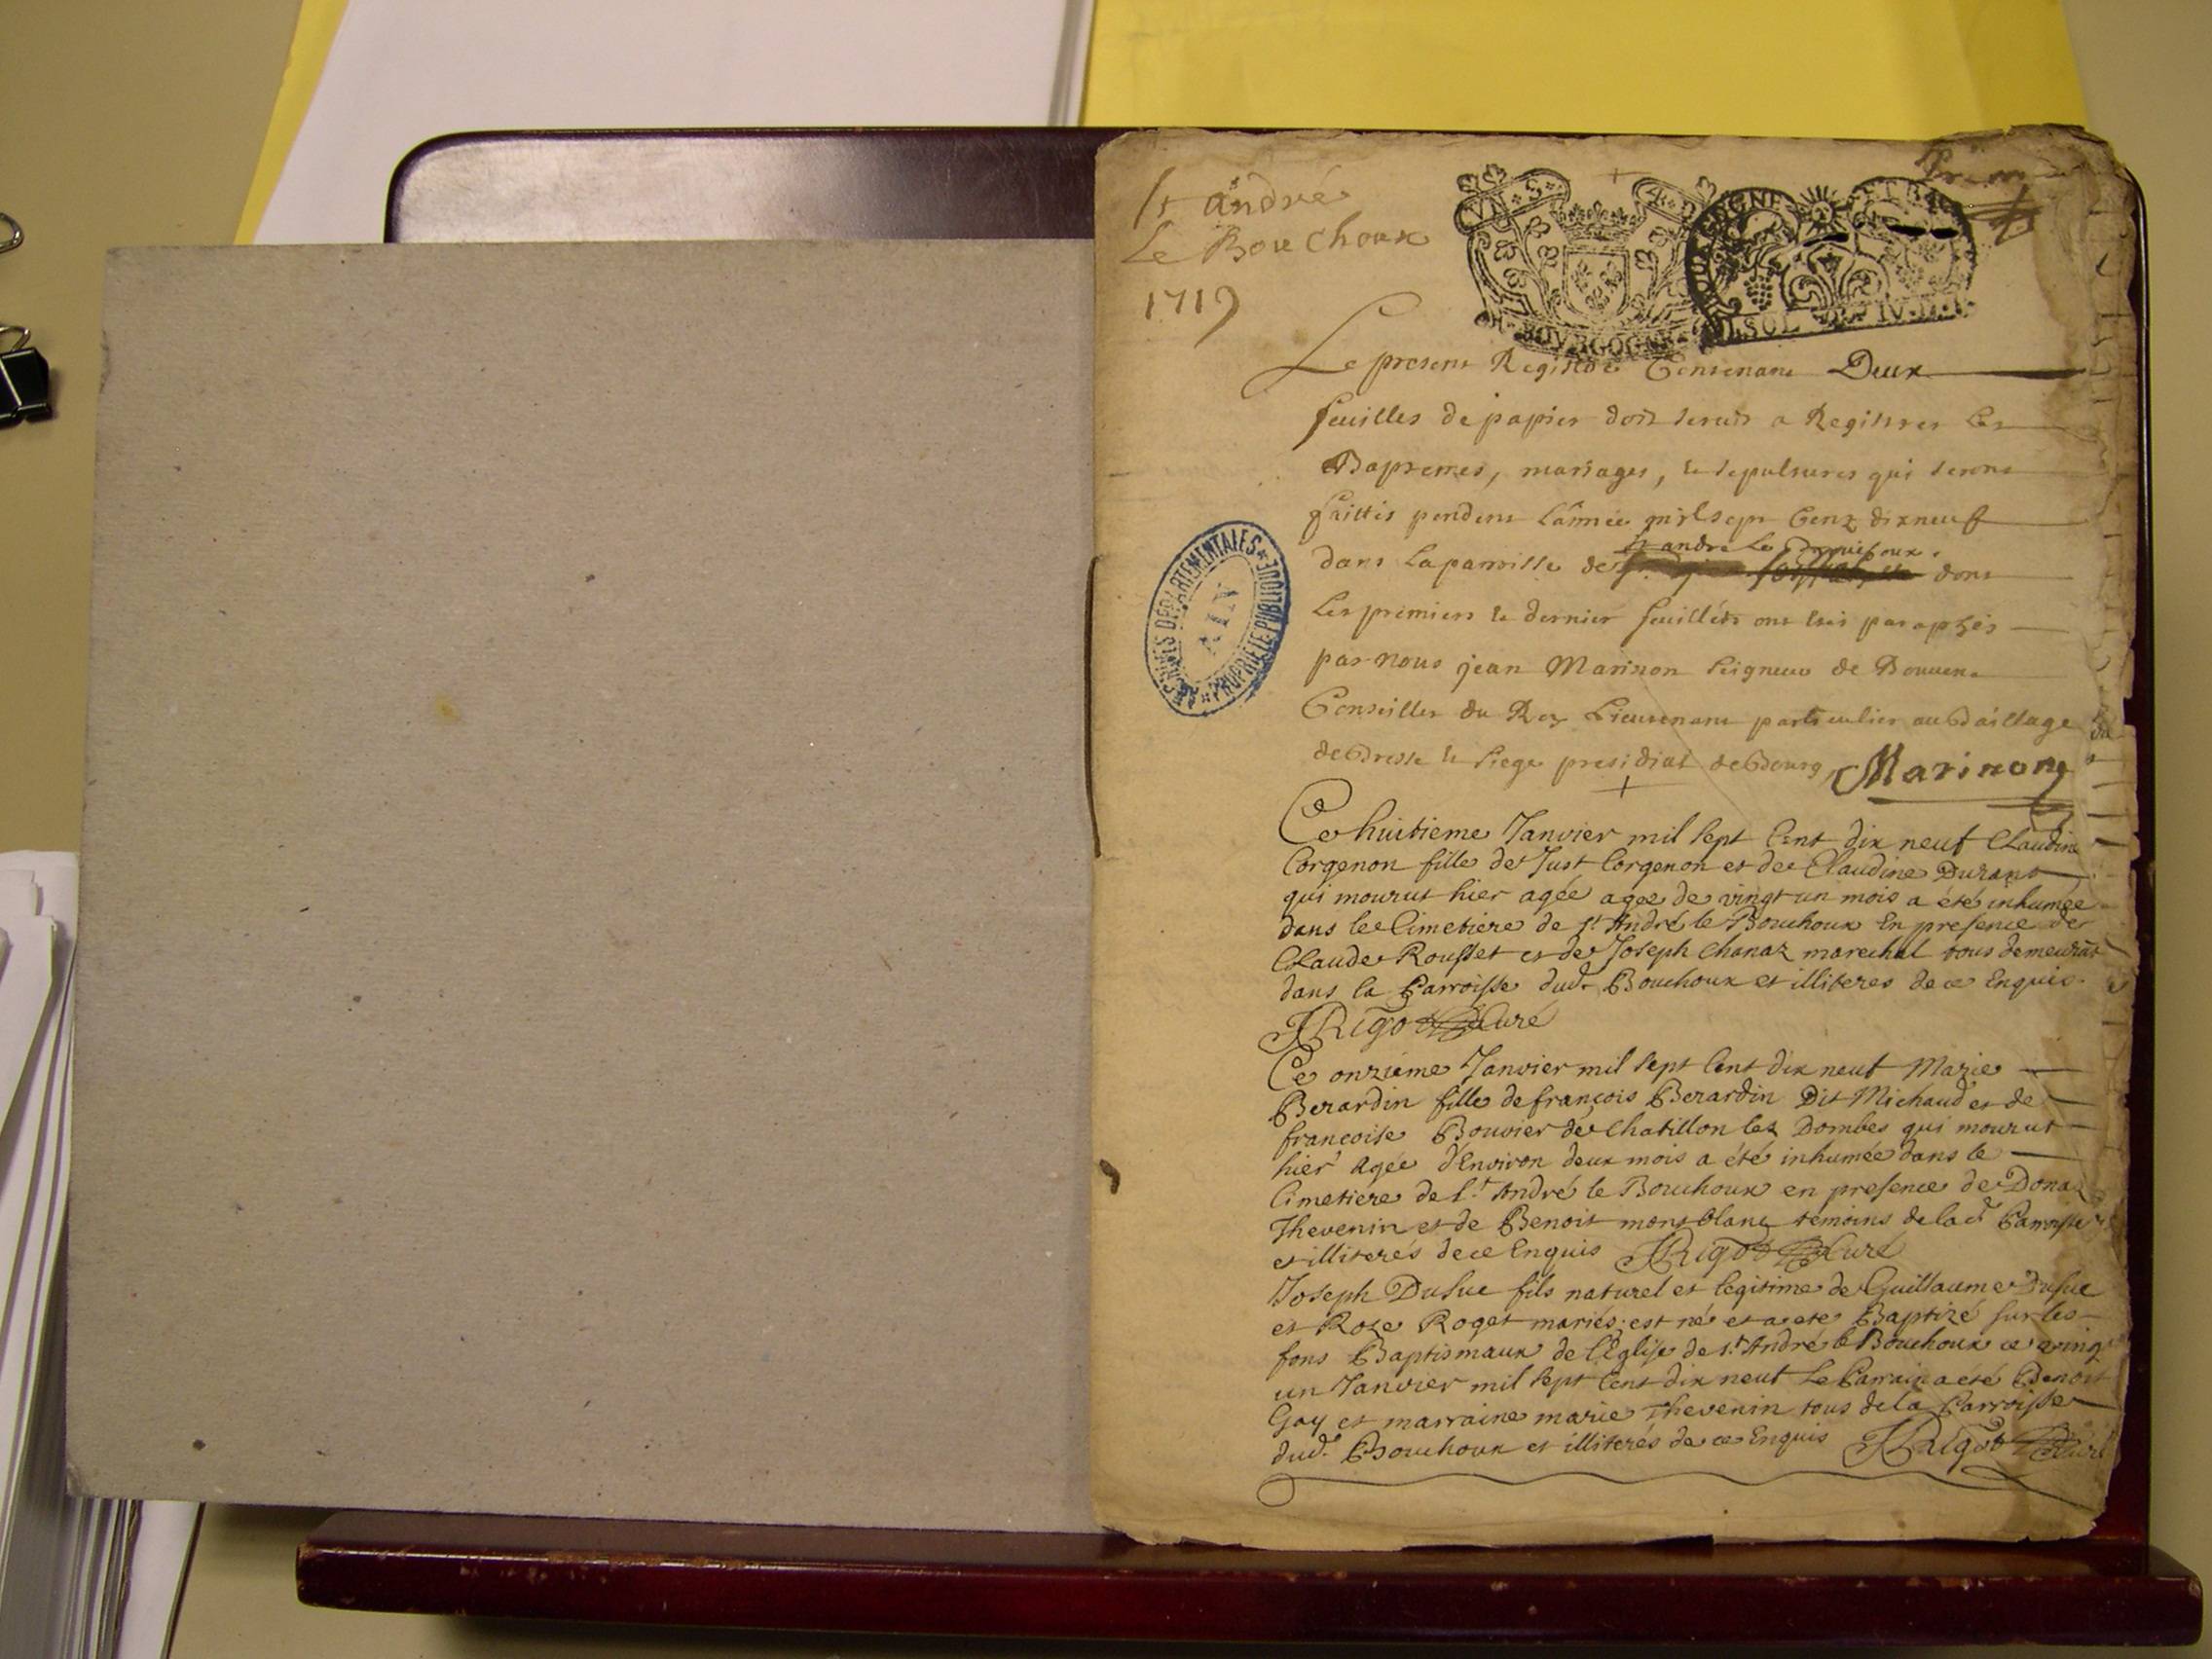 St André
Le Bouchoux
1719
Prem
GN. BOURGOGNE
UN. SOL IV. D.
ARCHIVES DÉPARTEMENTALES
AIN
PROPRIÉTÉ PUBLIQUE
Le present Registre Contenant Deux
feuilles de papier doit servir a Registrer Les
Baptemes, mariages, & sepultures qui seront
faittes pendent L'année mil sept Cent dixneuf
St andre Le Bouchoux
dans La parroisse de dont
Les premiers & dernier feuillets ont etés paraphés
par nous jean Marinon seigneur de Bouvent
Conseiller du Roy Lieutenant particulier au Baillage
de Bresse & siege presidial de Bourg Marinon
Ce huitieme Janvier mil sept Cent dix neuf Claudine
Corgenon fille de Just Corgenon et de Claudine Durant
qui mourut hier agée agée de vingt un mois a été inhumée
dans le Cimetiere de st André le Bouchoux En presence de
Claude Rousset et de Joseph Chanaz marechal tous demeurāt
dans la Parroisse dud. Bouchoux et illiteres de ce Enquis.
JRigot Curé
Ce onzieme Janvier mil sept Cent dix neuf Marie
Berardin fille de francois Berardin Dit Michaud et de
francoise Bouvier de Chatillon les Dombes qui mourut
hier Agée d'Environ deux mois a été inhumée dans le
Cimetiere de st André le Bouchoux en presence de Donaz
Thevenin et de Benoit montblanc temoins de lad. Parroisse
et illiterés de ce Enquis JRigot Curé
Joseph Dusuc fils naturel et legitime de Guillaume Dusuc
et Roze Roget mariés est né et a ete Baptizé sur les
fons Baptismaux de l'Eglise de st André le Bouchoux ce vingt
un Janvier mil sept Cent dix neuf Le Parrain a été Benoit
Gay et marraine marie Thevenin tous de la Parroisse
dud. Bouchoux et illiterés de ce Enquis JRigot Curé